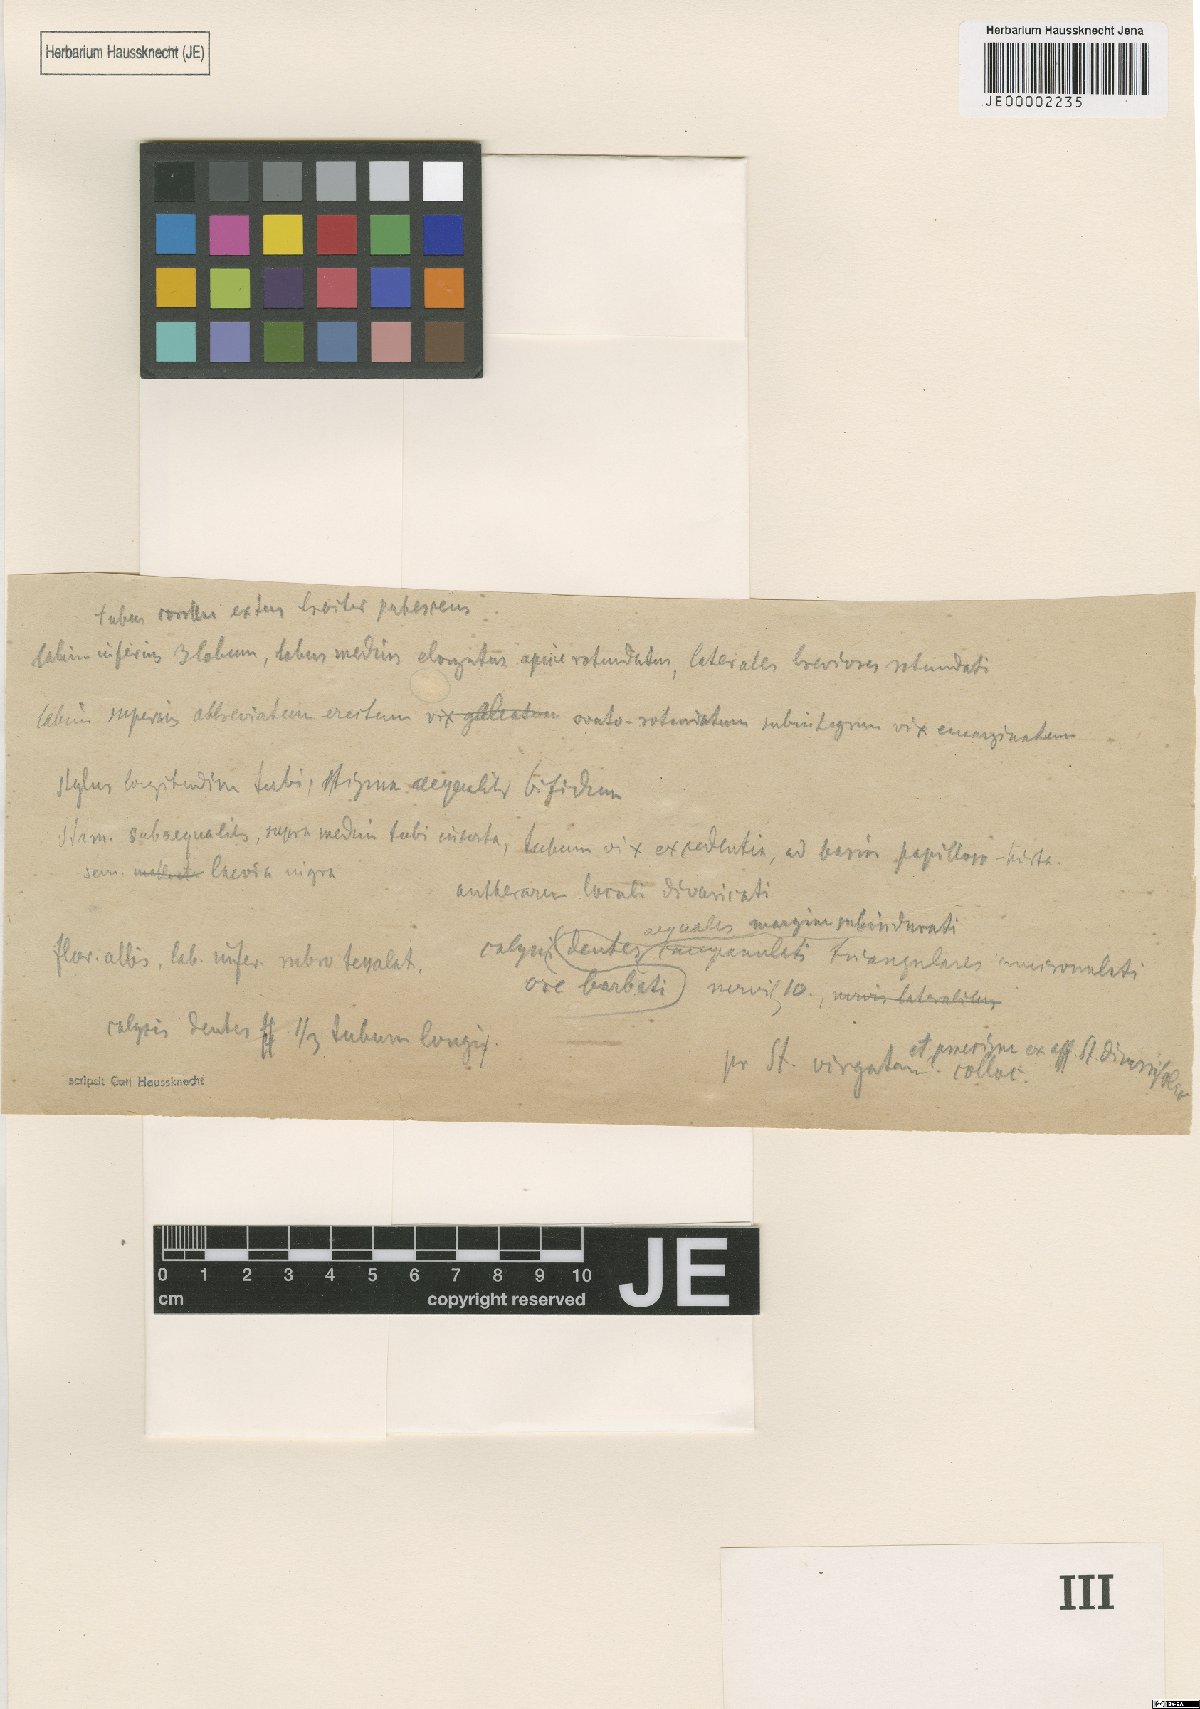 Herbarium Haussknecht (JE)
Herbarium Haussknecht Jena
JE00002235
tubus corolla extus breviter pubescens
labium inferius 3 lobum, lobus medius elongatus apice rotundatus, laterales breviores rotundati
labium superius abbreviatum erectum vix galeatum ovato-rotundatum subintegrum vix emarginatum
stylus longitudine tubi, stigma aequalitr bifidum
Stam. subaequalia, supra medium tubi inserta, tubum vix excedentia, ad basin papilloso-hirta.
sem. laevia nigra
antherarum loculi divaricati
aequales margine subindurati
flor. albis, lab. infer. rubro tessalat.
calycis dentes campanulati triangulares mucronulati
ore barbati nervis 10., nervis lateralibus
calycis dentes 1/3 tubum longis.
pr St. virgatam et proxime ex aff St. diversifoliae
colloc.
scripsit Carl Haussknecht
0 1 2 3 4 5 6 7 8 9 10
cm
copyright reserved
JE
III